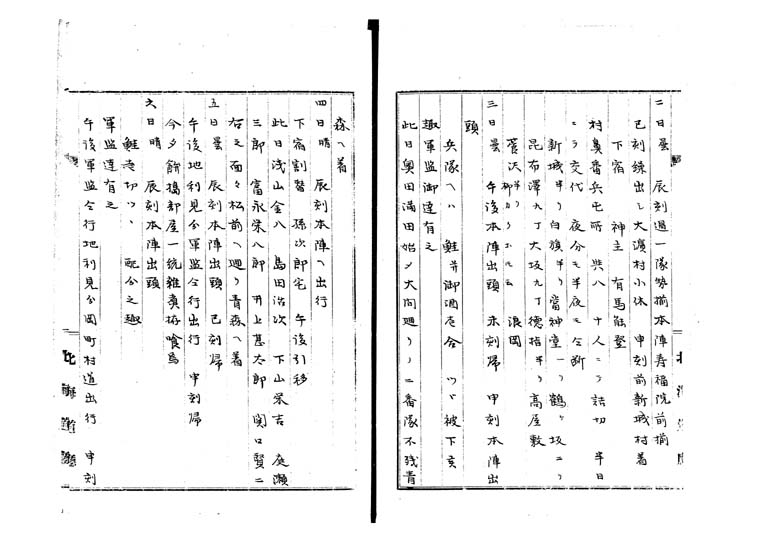 二日曇 辰刻過一隊勢揃本陣寿福院前揃
巳刻繰出し大濱村小休 申刻前新城村着
下宿 神主 有馬能登
村奥番兵屯所 共八 十人ニ而詰切 半日
ニ而交代 夜分モ半夜モ令断
新城 白旗 當神堂 鶴ヶ坂
昆布澤九丁大坂九丁德指 高屋敷
浪岡
三日曇 午後本陣出頭 未刻帰 申刻本陣出
頭
兵隊へハ 鮭并御酒 被下亥
趣軍監御達有之
此日奥田満田始メ大間廻り 二番隊不残青
森へ着
四日晴 辰刻本陣へ出行
下宿割替 孫次郎宅 午後引移
此日浅山金八 島田治次 下山栄吉 庭瀬
三郎 富永栄八郎 井上甚太郎 関口賢二
右之面々松前へ廻り青森へ着
五日曇 辰刻本陣出頭 巳刻帰
午後地利見分軍監令行出行 申刻帰
今夕餅搗部屋一統雑真揃喰為
六日晴 辰刻本陣出頭
鮭壱切ツヽ 配分之趣
軍監達有之
午後軍監令行地利見分岡町村道出行 申刻